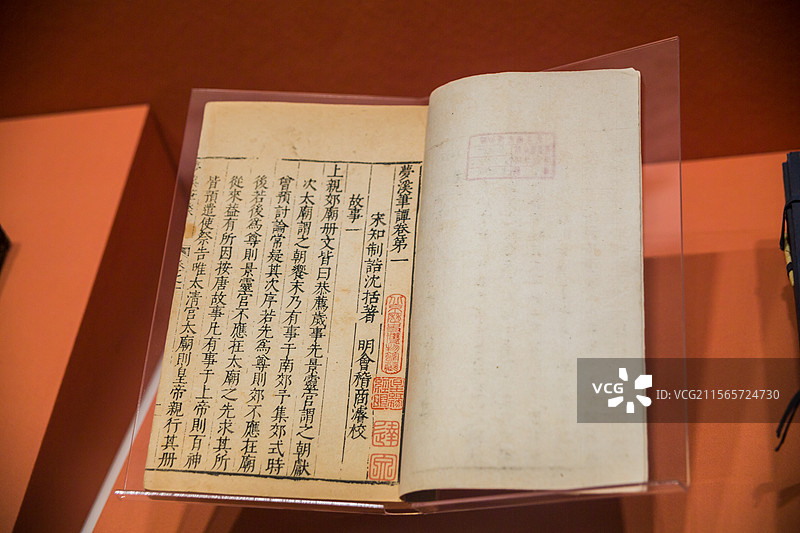 夢溪筆譚卷第一
宋知制誥沈括著 明會稽商濬校
故事一
上親郊廟册文皆曰恭薦歲事先景靈宮謂之朝獻
次太廟謂之朝饗末乃有事于南郊予集郊式時
曾預討論常疑其次序若先為尊則郊不應在廟
後若後為尊則景靈宮不應在太廟之先求其所
從來益有所因按唐故事凡有事于上帝則百神
皆預遣使祭告唯太清宮太廟則皇帝親行其册
VCG
视觉中国
ID: VCG211565724730